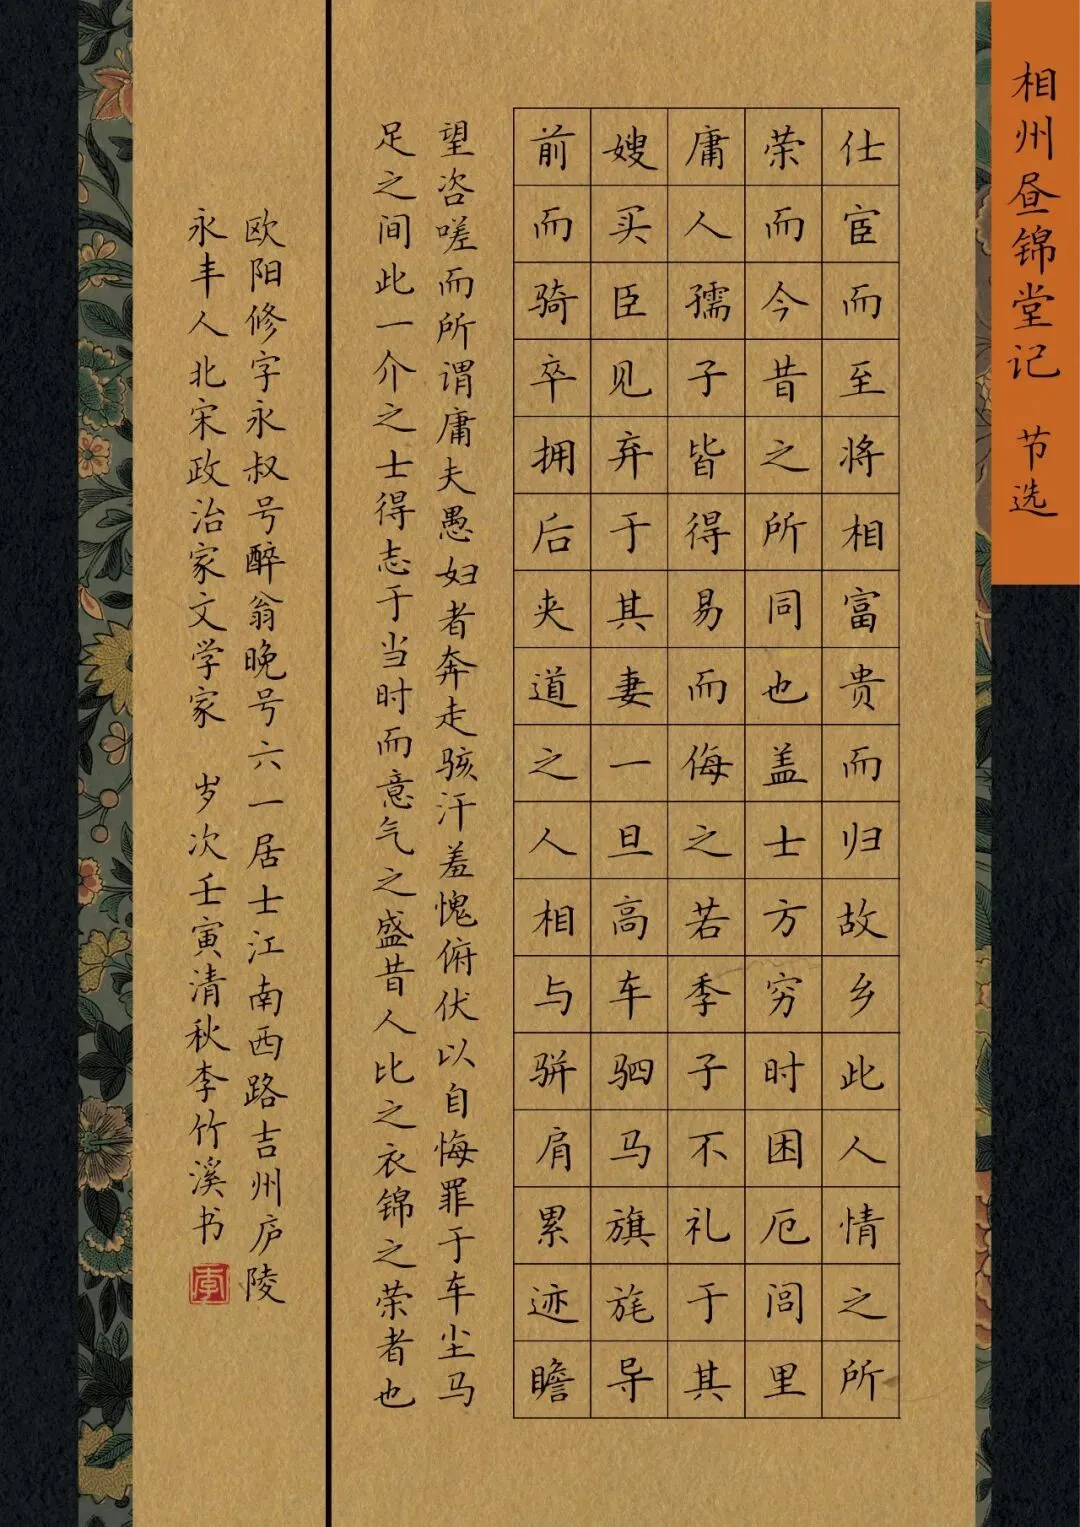 相州昼锦堂记 节选
仕宦而至将相富贵而归故乡此人情之所
荣而今昔之所同也盖士方穷时困厄闾里
庸人孺子皆得易而侮之若季子不礼于其
嫂买臣见弃于其妻一旦高车驷马旗旄导
前而骑卒拥后夹道之人相与骈肩累迹瞻
望咨嗟而所谓庸夫愚妇者奔走骇汗羞愧俯伏以自悔罪于车尘马
足之间此一介之士得志于当时而意气之盛昔人比之衣锦之荣者也
欧阳修字永叔号醉翁晚号六一居士江南西路吉州庐陵
永丰人北宋政治家文学家 岁次壬寅清秋李竹溪书
李